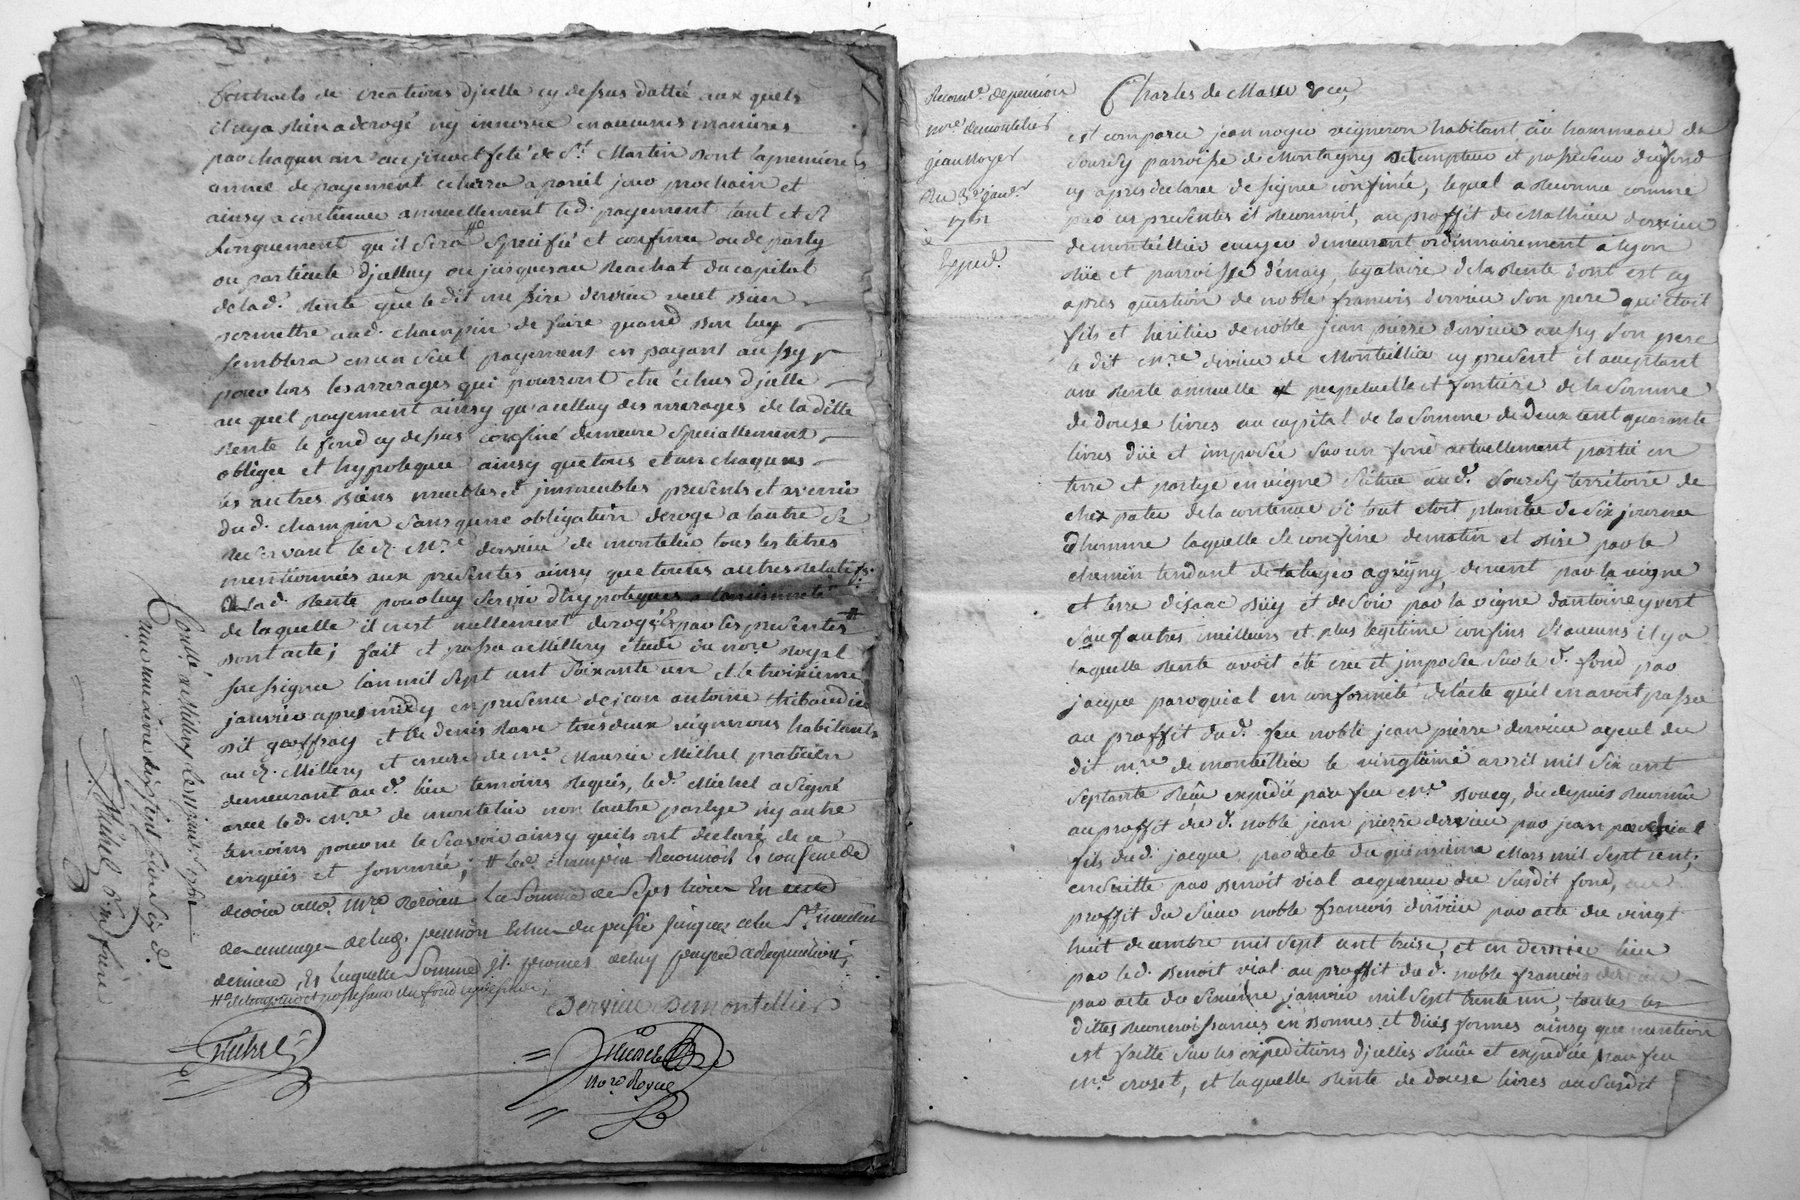 contracts de creations d'jcelle cy dessus datté aux quels
il n'y a Rien a derogé ny innové en aucunes manieres
par chaqun an au jour et fete de St. Martin dont la premiere
année de payement echerra a pareil jour prochain et
ainsy a continuer annuellement led. payement tant et si
longuement qu'il sera specifié et confiner ou de party
ou particule d'jcelluy ou jusques au Reachat du capital
de lad. Rente que le dit me sire dervieu veut bien
permettre aud. champin de faire quand bon luy
semblera en un seul payement en payant aussy
pour lors les arrerages qui pourront etre échus d'jcelle
au quel payement ainsy qu'a celluy des arrerages de la ditte
Rente le fond cy dessus confiné demeure speciallement
obligée et hypotequée ainsy que tous et un chaquns
les autres biens meubles et jmmeubles presents et avenir
dud. champin sans qu'une obligation deroge a l'autre se
Reservant le d. Mre. dervieu de montelier tous les titres
mentionnés aux presentes ainsy que toutes autres Relatifs
a lad. Rente pour luy servir d'hypoteques
de laquelle il n'est nullement derogé par les presentes
dont acte; fait et passé a Millery étude du nore. Royal
soussigné l'an mil sept cent soixante un et le troisieme
janvier apres midy en presence de jean antoine thibaudier
dit geoffray et de denis Rave tous deux vignerons habitants
au d. Millery et encore de me. Maurice Michel praticien
demeurant aud. lieu temoins Requis, le d. Michel a signé
avec led. mre. de montelier non l'autre partye ny autre
temoins pour ne le scavoir ainsy qu'ils ont déclaré de ce
enquis et sommés; # led. champin Reconnoit et confesse de
devoir aud. Mre Dervieu La Somme de Sept livres En
de arrerages de lad. pension Echus du passé jusques a la St. martin
derniere,
# detempteur et possesseur du fond cy apres
Dervieu Demontellier
Michel
Michel
Nore. Royal
Controllé a Millery le
janvier
Reconce. de pension
mre. de montelier
jean Noyer
Du 3e. janvr.
1761
Exped.
Charles de Masso &c.,
est comparu jean noyer vigneron habitant au hammeau de
Sourdy parroisse de Montagny detempteur et possesseur du fond
cy apres declaré designé confiné, lequel a Reconnu comme
par ces presentes il Reconnoit, au proffit de Mathieu dervieu
de monteillier ecuyer demeurant ordinnairement a lyon
Rüe et parroisse d'énay, legataire de la Rente dont est cy
apres question de noble francois dervieu son pere qui étoit
fils et heritier de noble jean pierre dervieu aussy son pere
le dit mre. dervieu de Monteillier cy present et aceptant
une Rente annuelle et perpetuelle et fontiere de la somme
de douse livres au capital de la somme de deux cent quarante
livres düe et imposée sur un fond actuellement partie en
terre et partye en vigne située aud. Sourdy territoire de
chez patre de la contenue si tout etoit planté de six journée
d'homme laquelle se confine de matin et Bise par le
chemin tendant de a grigny, devent par la vigne
et terre d'isaac Büy et de soir par la vigne d'antoine yvert
sauf autres meilleurs et plus legitime confins si aucuns il y a
laquelle Rente avoit été creé et jmposée sur le d. fond par
jacque paroquial en conformité de l'acte qu'il en avoit passé
au proffit dud. feu noble jean pierre dervieu ayeul du
dit mre. de monteillier le vingtieme avril mil six cent
septante Reçue expedié par feu me. Boucq, due depuis Reconnüe
au proffit du d. noble jean pierre dervieu par jean paroquial
fils dud. jacque, par acte du quinsieme Mars mil sept cent,
ensuitte par Benoit vial acquereur du susdit fond, au
proffit du sieur noble francois dervieu par acte du vingt
huit decembre mil sept cent trise, et en dernier lieu
par led. Benoit vial au proffit dud. noble francois dervieu
par acte du sixieme janvier mil sept trente un, toutes les
dittes Reconnoissances en bonnes et dües formes ainsy que mention
est faitte sur les expeditions d'jcelles Reçüe et expediée par feu
me. croset, et laquelle Rente de douse livres au susdit